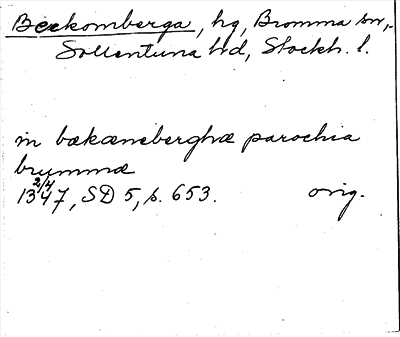 Beckomberga, hg, Bromma sn,
Sollentuna hd, Stockh. l.
in bækænsberghæ parochia
brymmæ
2/4
1347, SD 5, s. 653. orig.